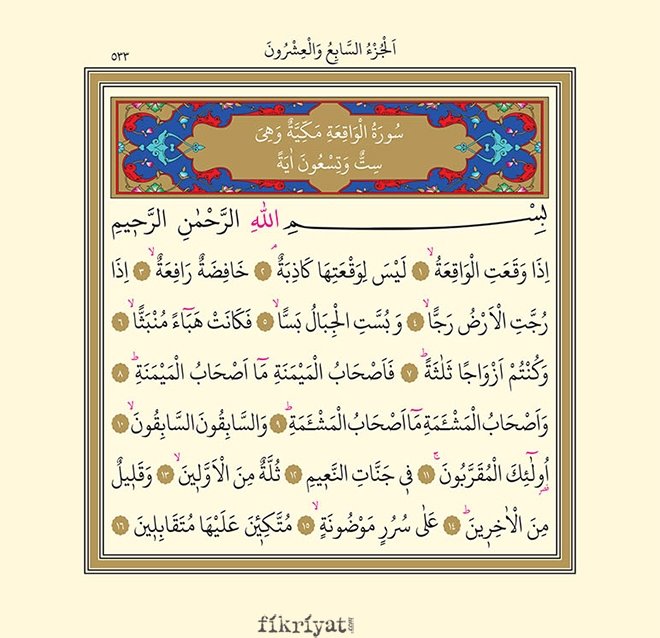 اَلْجُزْءُ السَّابِعُ وَالْعِشْرُونَ
٥٣٣
سُورَةُ الْوَاقِعَةِ مَكِّيَّةٌ وَهِىَ
سِتٌّ وَتِسْعُونَ اٰيَةً
بِسْــــــــمِ اللّٰهِ الرَّحْمٰنِ الرَّح۪يمِ
اِذَا وَقَعَتِ الْوَاقِعَةُۙ ﴿١﴾ لَيْسَ لِوَقْعَتِهَا كَاذِبَةٌۢ ﴿٢﴾ خَافِضَةٌ رَافِعَةٌۙ ﴿٣﴾ اِذَا
رُجَّتِ الْاَرْضُ رَجًّاۙ ﴿٤﴾ وَبُسَّتِ الْجِبَالُ بَسًّاۙ ﴿٥﴾ فَكَانَتْ هَبَٓاءً مُنْبَثًّاۙ ﴿٦﴾
وَكُنْتُمْ اَزْوَاجًا ثَلٰثَةًۜ ﴿٧﴾ فَاَصْحَابُ الْمَيْمَنَةِ مَٓا اَصْحَابُ الْمَيْمَنَةِۜ ﴿٨﴾
وَاَصْحَابُ الْمَشْـَٔمَةِ مَٓا اَصْحَابُ الْمَشْـَٔمَةِۜ ﴿٩﴾ وَالسَّابِقُونَ السَّابِقُونَۙ ﴿١٠﴾
اُو۬لٰٓئِكَ الْمُقَرَّبُونَۚ ﴿١١﴾ ف۪ي جَنَّاتِ النَّع۪يمِ ﴿١٢﴾ ثُلَّةٌ مِنَ الْاَوَّل۪ينَۙ ﴿١٣﴾ وَقَل۪يلٌ
مِنَ الْاٰخِر۪ينَۜ ﴿١٤﴾ عَلٰى سُرُرٍ مَوْضُونَةٍۙ ﴿١٥﴾ مُتَّكِـ۪ٔينَ عَلَيْهَا مُتَقَابِل۪ينَ ﴿١٦﴾
fikriyat.com